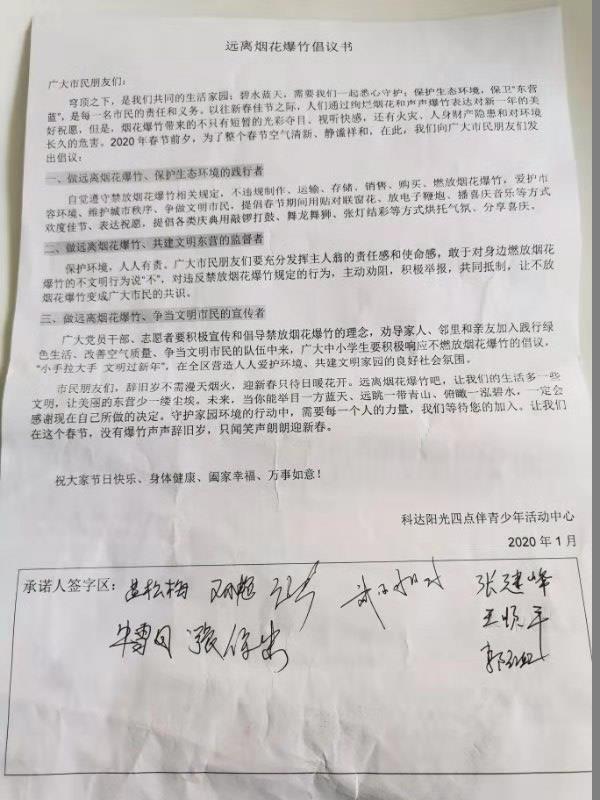 远离烟花爆竹倡议书
广大市民朋友们：
穹顶之下，是我们共同的生活家园；碧水蓝天，需要我们一起悉心守护；保护生态环境，保卫“东营
蓝”，是每一名市民的责任和义务。以往新春佳节之际，人们通过绚烂烟花和声声爆竹表达对新一年的美
好祝愿，但是，烟花爆竹带来的不只有短暂的光彩夺目、视听快感，还有火灾、人身财产隐患和对环境
长久的危害。2020年春节前夕，为了整个春节空气清新、静谧祥和，在此，我们向广大市民朋友们发
出倡议：
一、做远离烟花爆竹、保护生态环境的践行者
自觉遵守禁放烟花爆竹相关规定，不违规制作、运输、存储、销售、购买、燃放烟花爆竹，爱护市
容环境、维护城市秩序、争做文明市民，提倡春节期间用贴对联窗花、放电子鞭炮、播喜庆音乐等方式
欢度佳节、表达祝愿，提倡各类庆典用敲锣打鼓、舞龙舞狮、张灯结彩等方式烘托气氛、分享喜庆。
二、做远离烟花爆竹、共建文明东营的监督者
保护环境，人人有责。广大市民朋友们要充分发挥主人翁的责任感和使命感，敢于对身边燃放烟花
爆竹的不文明行为说“不”，对违反禁放烟花爆竹规定的行为，主动劝阻，积极举报，共同抵制，让不放
烟花爆竹变成广大市民的共识。
三、做远离烟花爆竹、争当文明市民的宣传者
广大党员干部、志愿者要积极宣传和倡导禁放烟花爆竹的理念，劝导家人、邻里和亲友加入践行绿
色生活、改善空气质量、争当文明市民的队伍中来，广大中小学生要积极响应不燃放烟花爆竹的倡议，
“小手拉大手 文明过新年”，在全区营造人人爱护环境、共建文明家园的良好社会氛围。
市民朋友们，辞旧岁不需漫天烟火，迎新春只待日暖花开。远离烟花爆竹吧，让我们的生活多一些
文明，让美丽的东营少一缕尘埃。未来，当你能举目一方蓝天、远眺一带青山、俯瞰一泓碧水，一定会
感谢现在自己所做的决定。守护家园环境的行动中，需要每一个人的力量，我们等待您的加入。让我们
在这个春节，没有爆竹声声辞旧岁，只闻笑声朗朗迎新春。
祝大家节日快乐、身体健康、阖家幸福、万事如意！
科达阳光四点伴青少年活动中心
2020年1月
承诺人签字区： 盖松梅 张建峰
王顺平
牛雪日 张保忠